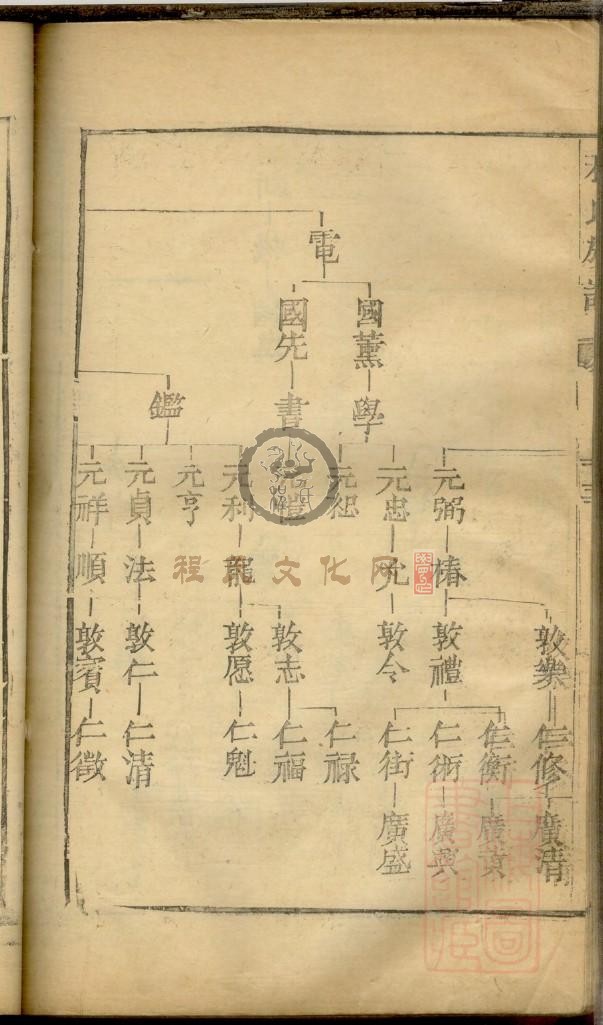 電
國薰
國先
學
書
鑑
元弼
元忠
元利
元亨
元貞
元祥
椿
允
龍
法
順
敦樂
敦禮
敦令
敦志
敦愿
敦仁
敦賓
仁修
仁衡
仁術
仁街
仁禄
仁福
仁魁
仁清
仁徵
廣清
廣興
廣盛
程氏文化网